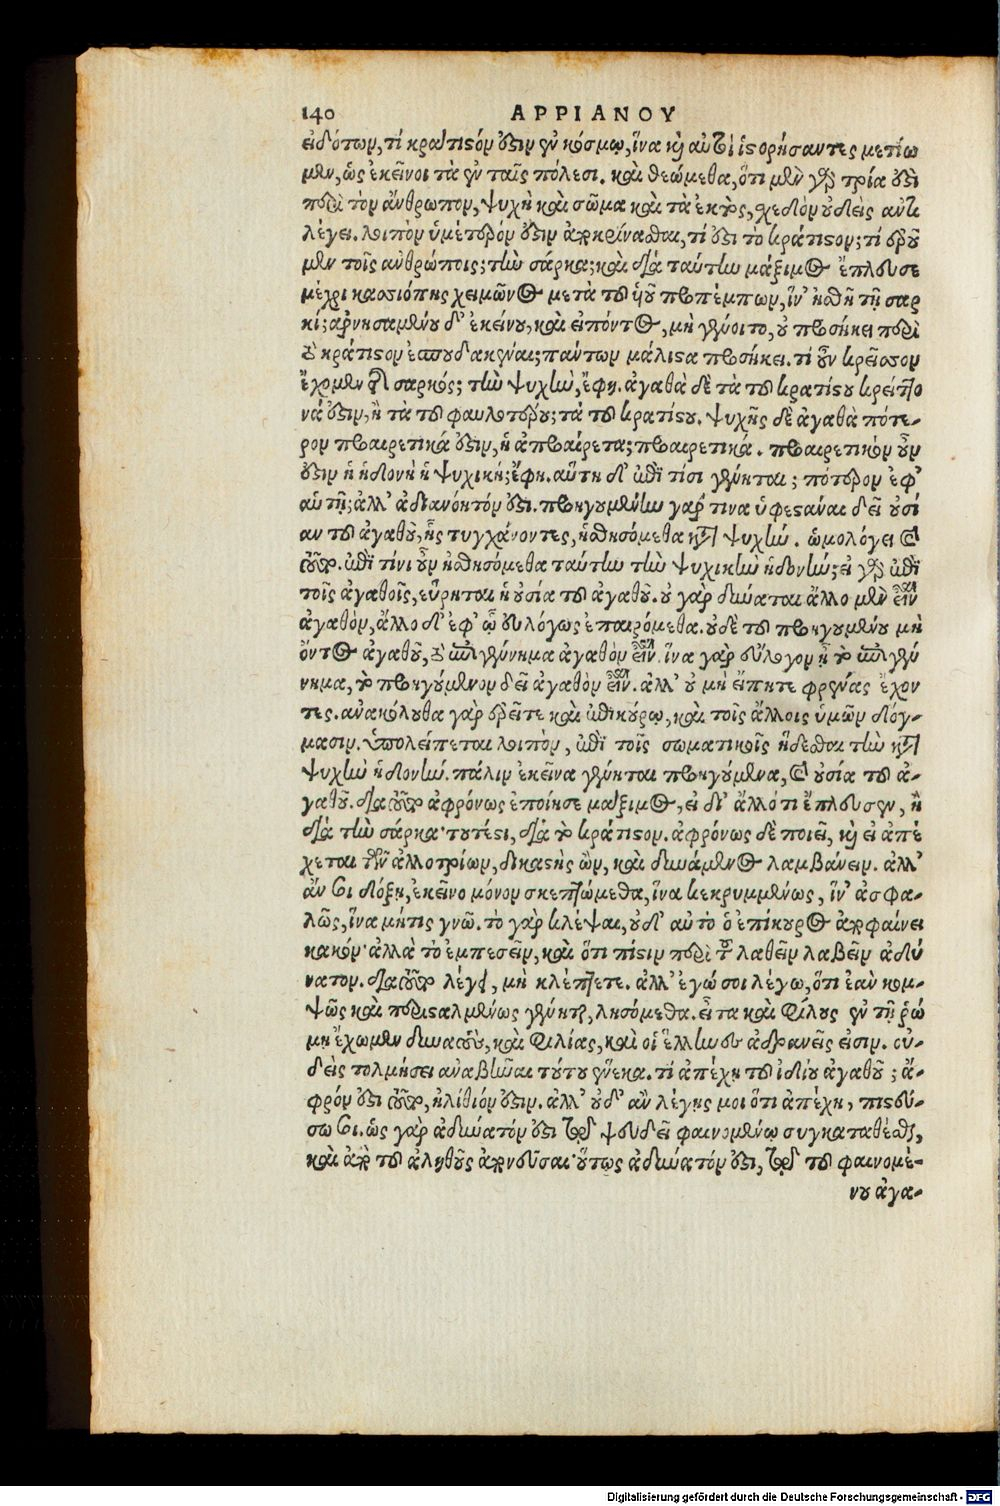 140 ΑΡΡΙΑΝΟΥ
εἰδότων, τί κράτιστόν ἐστιν ἐν κόσμῳ, ἵνα καὶ αὐτοὶ ἱστορήσαντες μετίω
μεν, ὡς ἐκεῖνοι τὰ ἐν ταῖς πόλεσι. καὶ θεώμεθα, ὅτι μὲν γὰρ τρία ἐστὶ
περὶ τὸν ἄνθρωπον, ψυχὴ καὶ σῶμα καὶ τὰ ἐκτὸς, σχεδὸν οὐδεὶς ἀντι
λέγει. λοιπὸν ὑμέτερόν ἐστιν ἀποκρίνασθαι, τί ἐστι τὸ κράτιστον; τί ἐροῦ
μεν τοῖς ἀνθρώποις; τὴν σάρκα; καὶ διὰ ταύτην μάξιμος ἔπλευσε
μέχρι κασσιόπης χειμῶνος μετὰ τοῦ υἱοῦ προπέμπων, ἵν' ἡσθῇ τῇ σαρ
κί; ἀρνησαμένου δ' ἐκείνου, καὶ εἰπόντος, μὴ γένοιτο, οὐ προσήκει περὶ
τὸ κράτιστον ἐσπουδακέναι; πάντων μάλιστα προσήκει. τί οὖν κρεῖσσον
ἔχομεν τῆς σαρκός; τὴν ψυχὴν, ἔφη. ἀγαθὰ δὲ τὰ τοῦ κρατίστου κρείττο
νά ἐστιν, ἢ τὰ τοῦ φαυλοτέρου; τὰ τοῦ κρατίστου. ψυχῆς δὲ ἀγαθὰ πότε-
ρον προαιρετικά ἐστιν, ἢ ἀπροαίρετα; προαιρετικά. προαιρετικὸν οὖν
ἐστιν ἡ ἡδονὴ ἡ ψυχική; ἔφη. αὕτη δ' ἐπὶ τίσι γένηται; πότερον ἐφ'
αὑτῇ; ἀλλ' ἀδιανόητόν ἐστι. προηγουμένην γάρ τινα ὑφεστάναι δεῖ οὐσί
αν τοῦ ἀγαθοῦ, ἧς τυγχάνοντες, ἡσθησόμεθα κατὰ ψυχήν. ὡμολόγει καὶ
τοῦτο. ἐπὶ τίνι οὖν ἡσθησόμεθα ταύτην τὴν ψυχικὴν ἡδονήν; εἰ γὰρ ἐπὶ
τοῖς ἀγαθοῖς, εὕρηται ἡ οὐσία τοῦ ἀγαθοῦ. οὐ γὰρ δύναται ἄλλο μὲν εἶναι
ἀγαθὸν, ἄλλο δ' ἐφ' ᾧ εὐλόγως ἐπαιρόμεθα. οὐδὲ τοῦ προηγουμένου μὴ
ὄντος ἀγαθοῦ, τὸ ἐπιγέννημα ἀγαθὸν εἶναι. ἵνα γὰρ εὔλογον ᾖ τὸ ἐπιγέν
νημα, τὸ προηγούμενον δεῖ ἀγαθὸν εἶναι. ἀλλ' οὐ μὴ εἴπητε φρένας ἔχον
τες. ἀνακόλουθα γὰρ ἐρεῖτε καὶ ἐπικούρῳ, καὶ τοῖς ἄλλοις ὑμῶν δόγ-
μασιν. ὑπολείπεται λοιπὸν, ἐπὶ τοῖς σωματικοῖς ἥδεσθαι τὴν κατὰ
ψυχὴν ἡδονήν. πάλιν ἐκεῖνα γένηται προηγούμενα, καὶ οὐσία τοῦ ἀ-
γαθοῦ. διὰ τοῦτο ἀφρόνως ἐποίησε μάξιμος, εἰ δι' ἄλλό τι ἔπλευσεν, ἢ
διὰ τὴν σάρκα· τουτέστι, διὰ τὸ κράτιστον. ἀφρόνως δὲ ποιεῖ, καὶ εἰ ἀπέ
χεται τῶν ἀλλοτρίων, δικαστὴς ὢν, καὶ δυνάμενος λαμβάνειν. ἀλλ'
ἄν σοι δόξῃ, ἐκεῖνο μόνον σκεπτώμεθα, ἵνα κεκρυμμένως, ἵν' ἀσφα-
λῶς, ἵνα μήτις γνῶ. τὸ γὰρ κλέψαι, οὐδ' αὐτὸ ὁ ἐπίκουρος ἀποφαίνει
κακόν· ἀλλὰ τὸ ἐμπεσεῖν, καὶ ὅτι πίστιν περὶ τοῦ λαθεῖν λαβεῖν ἀδύ
νατον. διὰ τοῦτο λέγει, μὴ κλέπτετε. ἀλλ' ἐγώ σοι λέγω, ὅτι ἐὰν κομ-
ψῶς καὶ περιεσταλμένως γένηται, λησόμεθα. εἶτα καὶ φίλους ἐν τῇ ῥώ
μῃ ἔχομεν δυνατοὺς, καὶ φιλίας, καὶ οἱ ἕλληνες ἀδρανεῖς εἰσιν. οὐ-
δεὶς τολμήσει ἀναβῆναι τούτου ἕνεκα. τί ἀπέχῃ τοῦ ἰδίου ἀγαθοῦ; ἄ-
φρόν ἐστι τοῦτο, ἠλίθιόν ἐστιν. ἀλλ' οὐδ' ἂν λέγῃς μοι ὅτι ἀπέχῃ, πιστεύ-
σω σοι. ὡς γὰρ ἀδύνατόν ἐστι τῷ ψευδεῖ φαινομένῳ συγκαταθέσθαι,
καὶ ἀπὸ τοῦ ἀληθοῦς ἀπονεῦσαι· οὕτως ἀδύνατόν ἐστι, τοῦ φαινομέ-
νου ἀγα-
Digitalisierung gefördert durch die Deutsche Forschungsgemeinschaft - DFG